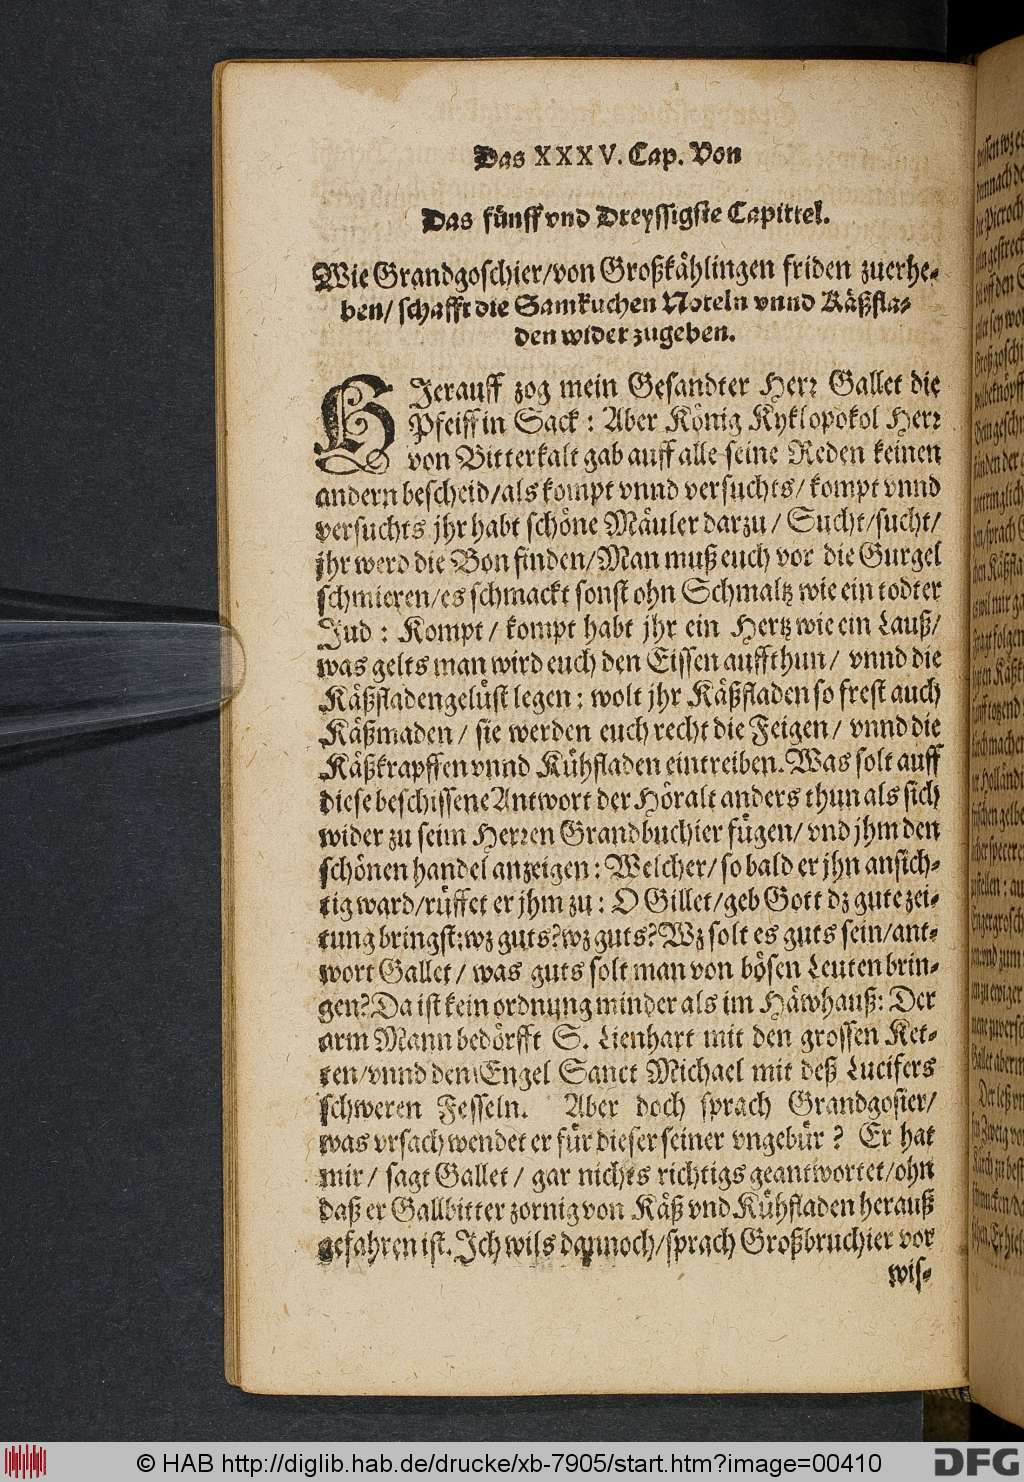 Das XXXV. Cap. Von
Das fünff vnd Dreyssigste Capittel.
Wie Grandgoschier/von Großkählingen friden zuerhe-
ben/ schafft die Samkuchen Noteln vnnd Käßfla-
den wider zugeben.
HJerauff zog mein Gesandter Herr Gallet die
Pfeiff in Sack: Aber König Kyklopokol Herr
von Bitterkalt gab auff alle seine Reden keinen
andern bescheid/als kompt vnnd versuchts/ kompt vnnd
versuchts jhr habt schöne Mäuler darzu/ Sucht/sucht/
jhr werd die Bon finden/Man muß euch vor die Gurgel
schmieren/es schmackt sonst ohn Schmaltz wie ein todter
Jud: Kompt/ kompt habt jhr ein Hertz wie ein Lauß/
was gelts man wird euch den Eissen auffthun/ vnnd die
Käßfladengelüst legen: wolt jhr Käßfladen so frest auch
Käßmaden/ sie werden euch recht die Feigen/ vnnd die
Käßkrapffen vnnd Kühfladen eintreiben. Was solt auff
diese beschissene Antwort der Höralt anders thun als sich
wider zu seim Herren Grandbuchier fügen/ vnd jhm den
schönen handel anzeigen: Welcher/ so bald er jhn ansich-
tig ward/rüffet er jhm zu: O Gillet/geb Gott dz gute zei-
tung bringst:wz guts?wz guts?Wz solt es guts sein/ant-
wort Gallet/ was guts solt man von bösen Leuten brin-
gen?Da ist kein ordnung minder als im Häwhauß: Der
arm Mann bedörfft S. Lienhart mit den grossen Ket-
ten/vnnd dem Engel Sanct Michael mit deß Lucifers
schweren Fesseln. Aber doch sprach Grandgosier/
was vrsach wendet er für dieser seiner vngebür? Er hat
mir/ sagt Gallet/ gar nichts richtigs geantwortet/ohn
daß er Gallbitter zornig von Käß vnd Kühfladen herauß
gefahren ist. Jch wils dannoch/sprach Großbruchier vor
wis-
© HAB http://diglib.hab.de/drucke/xb-7905/start.htm?image=00410
DFG